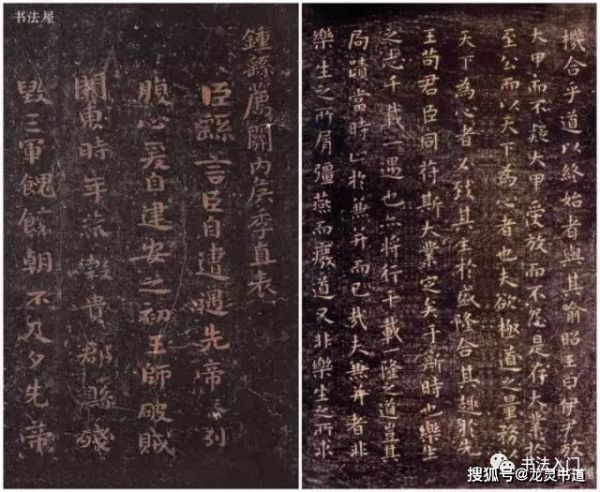 书法屋
鍾繇薦關內侯季直表
臣繇言臣自遭遇先帝忝列
腹心爰自建安之初王師破賊
關東時年荒穀貴郡縣殘
毀三軍餽饟朝不及夕先帝
機合乎道以終始者與其喻昭王曰伊尹放
大甲而不疑大甲受放而不怨是存大業於
至公而以天下為心者也夫欲極道之量務以
天下為心者必致其主於盛隆合其趣於先
王苟君臣同符斯大業定矣于斯時也樂生
之志千載一遇也亦將行千載一隆之道豈其
局蹟當時止於兼并而已哉夫兼并者非
樂生之所屑彊燕而廢道又非樂生之所求
书法屋
书法入门
搜狐号@龙灵书道